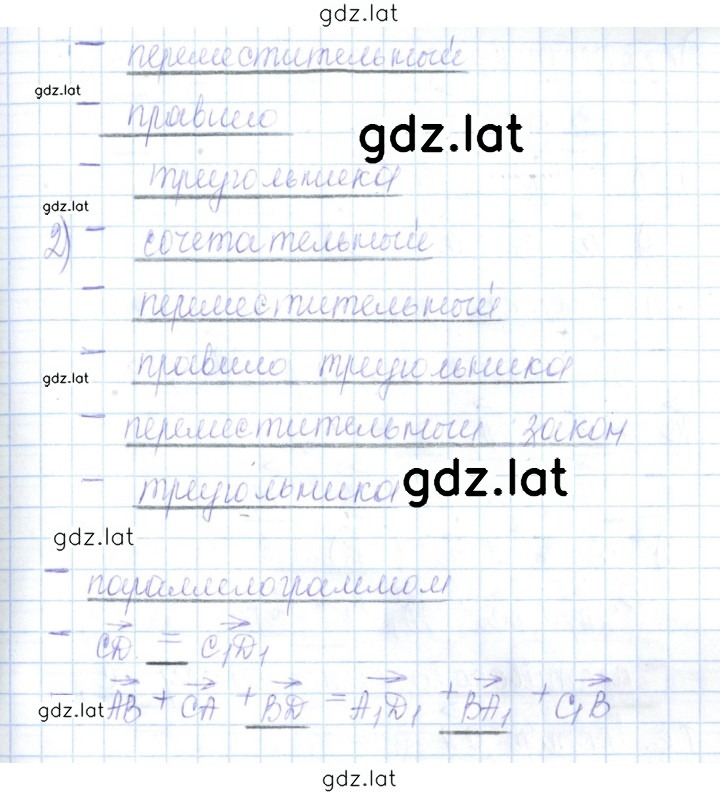 gdz.lat
— переместительный
gdz.lat
— правило
gdz.lat
— треугольника
gdz.lat
2) — сочетательный
— переместительный
— правило треугольника
gdz.lat
— переместительный закон
— треугольника
gdz.lat
gdz.lat
— параллелограммом
— CD = C₁D₁
— AB + CA + BD = A₁D₁ + BA₁ + C₁B
gdz.lat
gdz.lat